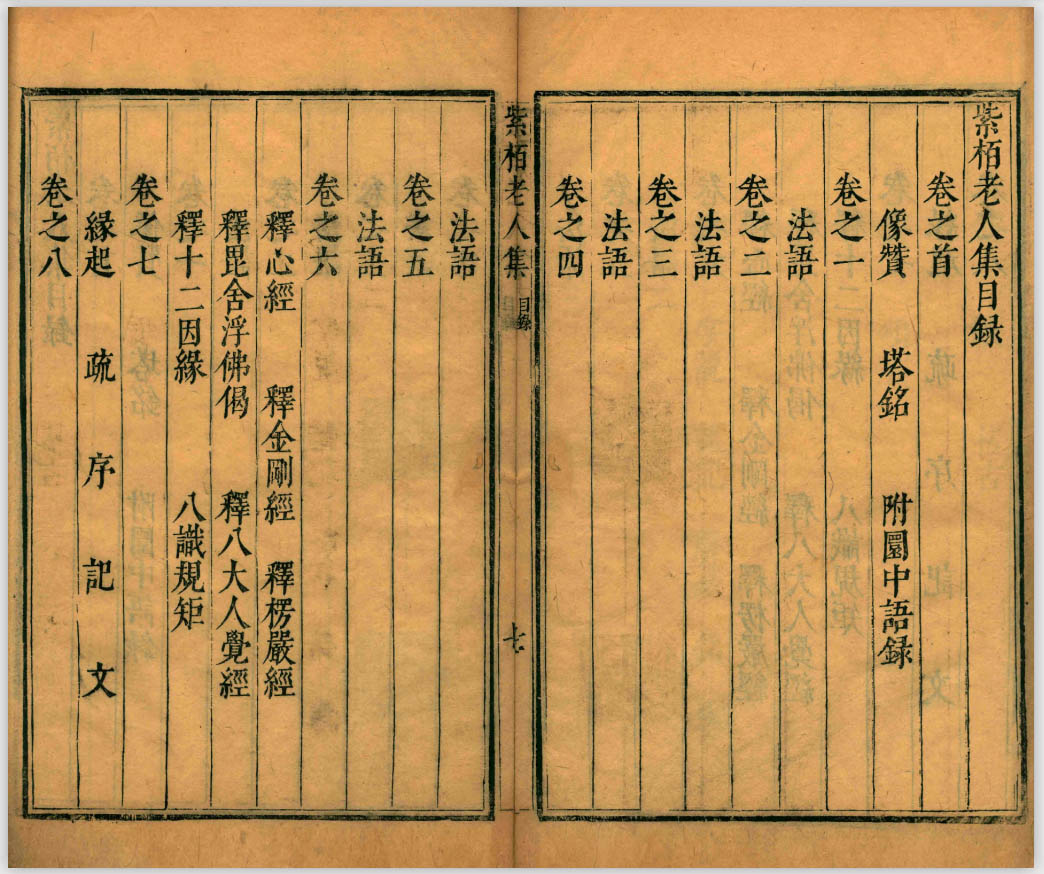 紫栢老人集目録
卷之首
像贊 塔銘 附圜中語録
卷之一
法語
卷之二
法語
卷之三
法語
卷之四
紫栢老人集 目録 七
法語
卷之五
法語
卷之六
釋心經 釋金剛經 釋楞嚴經
釋毘舍浮佛偈 釋八大人覺經
釋十二因緣 八識規矩
卷之七
緣起 疏 序 記 文
卷之八